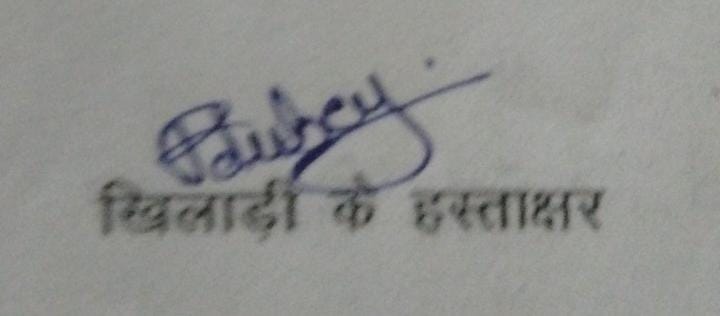 Pdubey
खिलाड़ी के हस्ताक्षर